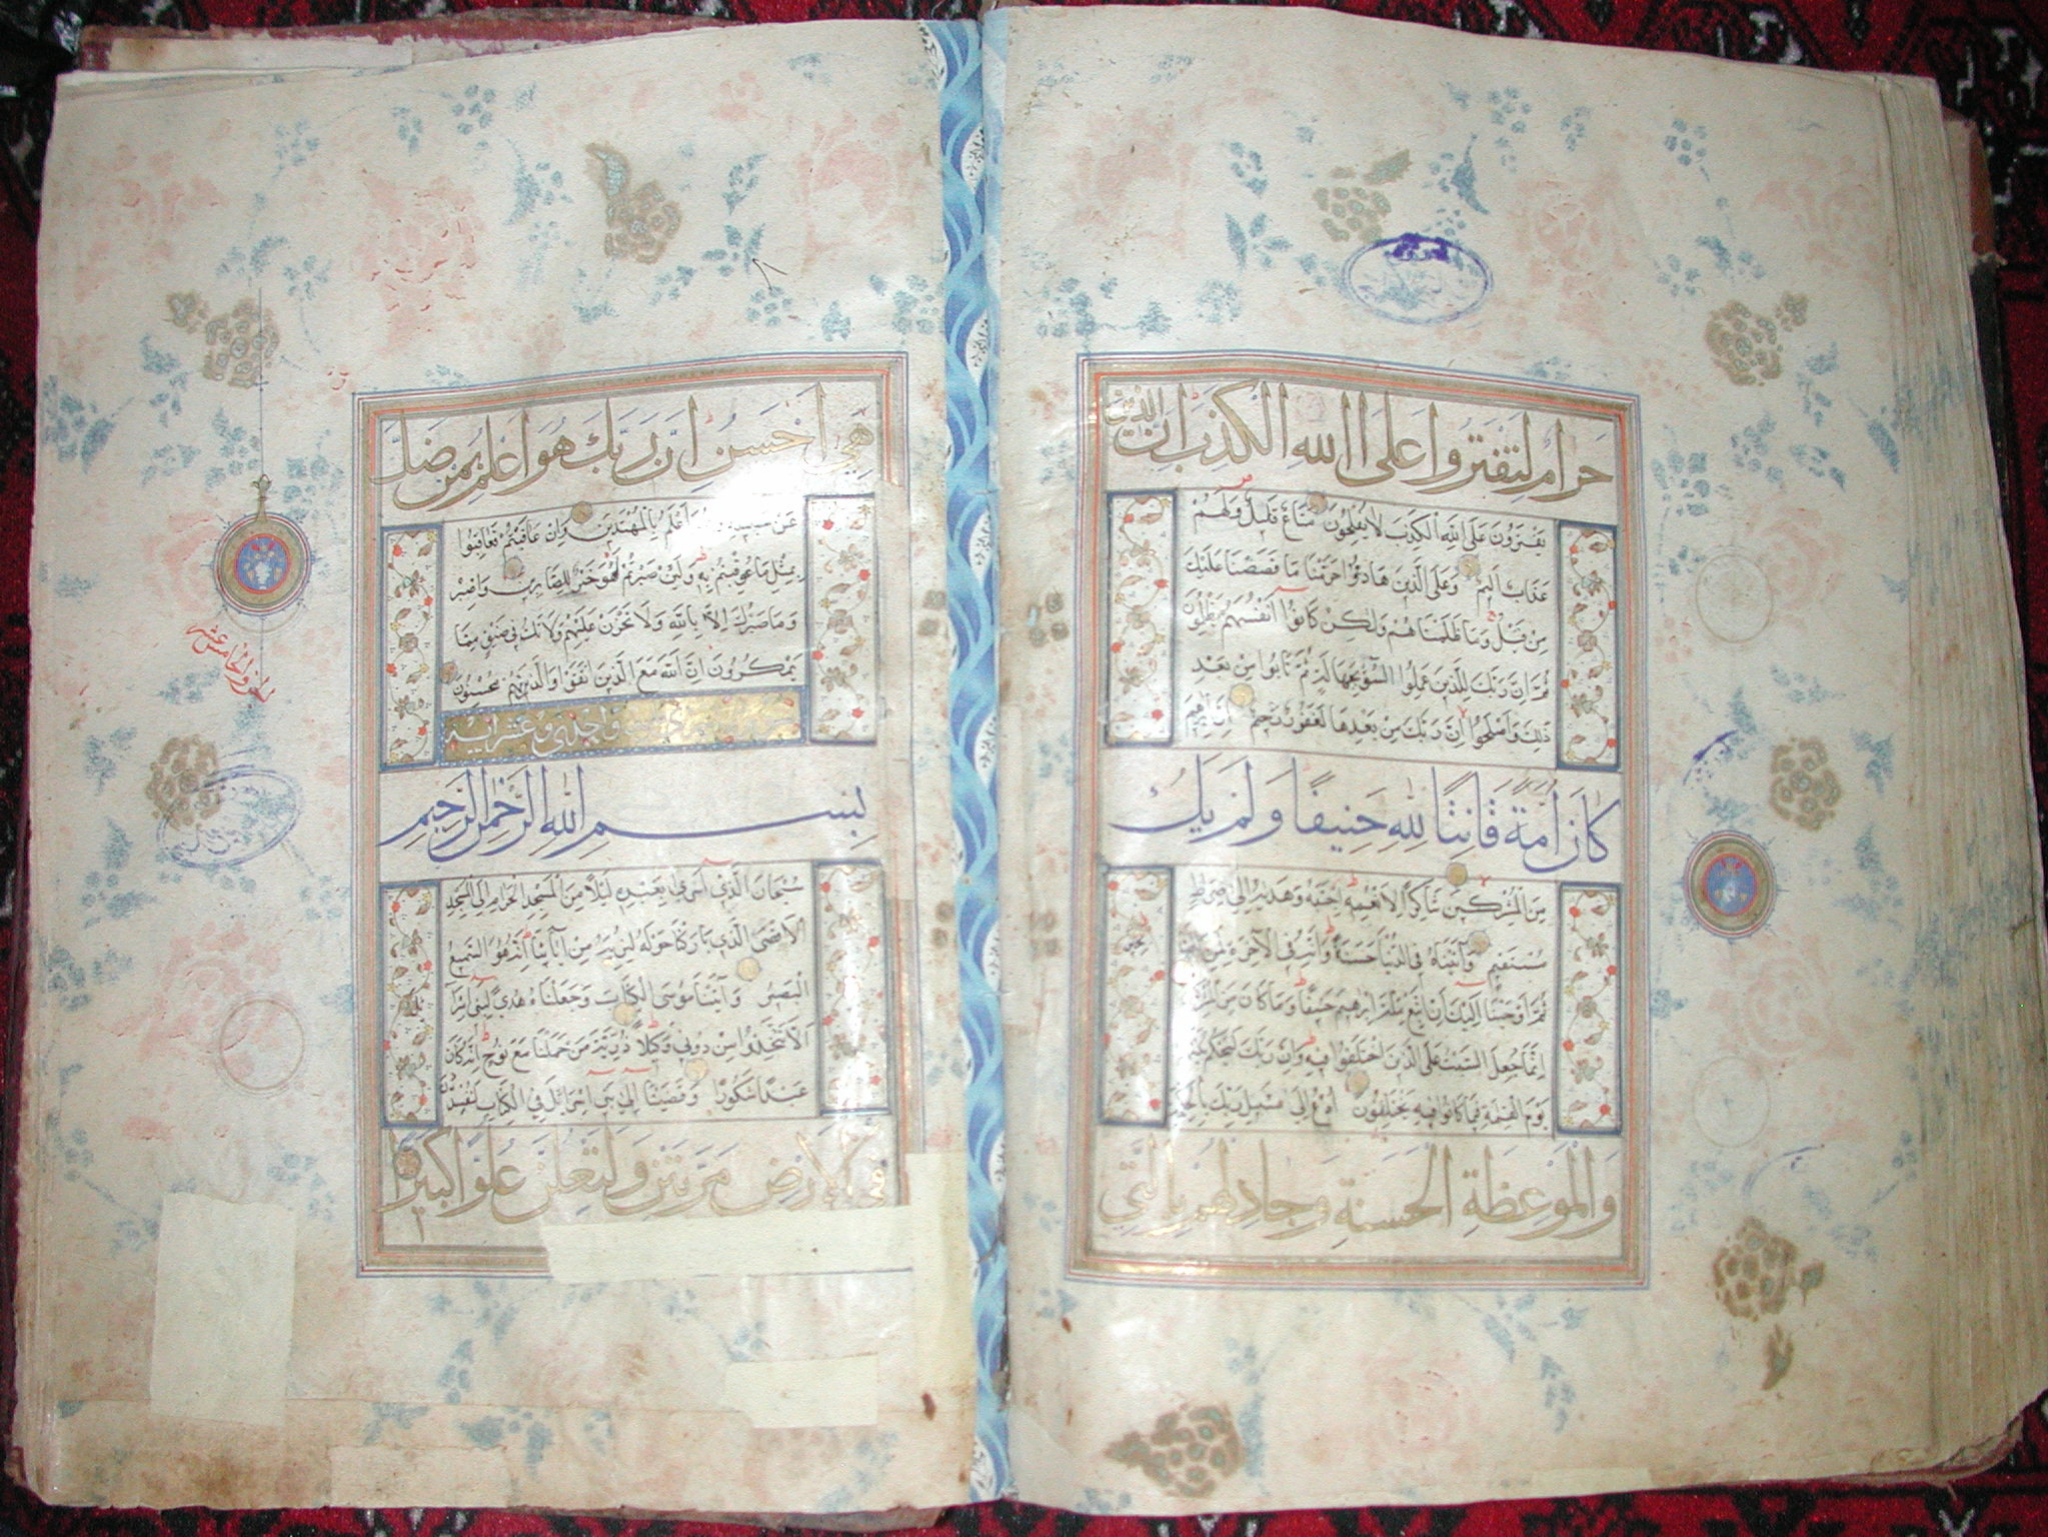 حَرَامٌ لِتَفْتَرُوا عَلَى اللهِ الْكَذِبَ اِنَّ الَّذِينَ
يَفْتَرُونَ عَلَى اللهِ الْكَذِبَ لَا يُفْلِحُونَ مَتَاعٌ قَلِيلٌ وَلَهُمْ
عَذَابٌ اَلِيمٌ وَعَلَى الَّذِينَ هَادُوا حَرَّمْنَا مَا قَصَصْنَا عَلَيْكَ
مِنْ قَبْلُ وَمَا ظَلَمْنَاهُمْ وَلٰكِنْ كَانُوا اَنْفُسَهُمْ يَظْلِمُونَ
ثُمَّ اِنَّ رَبَّكَ لِلَّذِينَ عَمِلُوا السُّوءَ بِجَهَالَةٍ ثُمَّ تَابُوا مِنْ بَعْدِ
ذٰلِكَ وَاَصْلَحُوا اِنَّ رَبَّكَ مِنْ بَعْدِهَا لَغَفُورٌ رَحِيمٌ اِنَّ اِبْرٰهِيمَ
كَانَ اُمَّةً قَانِتًا لِلّٰهِ حَنِيفًا وَلَمْ يَكُ
مِنَ الْمُشْرِكِينَ شَاكِرًا لِاَنْعُمِهِ اجْتَبَاهُ وَهَدَاهُ اِلَى صِرَاطٍ
مُسْتَقِيمٍ وَاٰتَيْنَاهُ فِي الدُّنْيَا حَسَنَةً وَاِنَّهُ فِي الْاٰخِرَةِ لَمِنَ
ثُمَّ اَوْحَيْنَا اِلَيْكَ اَنِ اتَّبِعْ مِلَّةَ اِبْرٰهِيمَ حَنِيفًا وَمَا كَانَ مِنَ
اِنَّمَا جُعِلَ السَّبْتُ عَلَى الَّذِينَ اخْتَلَفُوا فِيهِ وَاِنَّ رَبَّكَ لَيَحْكُمُ بَيْنَهُمْ
يَوْمَ الْقِيٰمَةِ فِيمَا كَانُوا فِيهِ يَخْتَلِفُونَ اُدْعُ اِلَى سَبِيلِ رَبِّكَ بِالْحِكْمَةِ
وَالْمَوْعِظَةِ الْحَسَنَةِ وَجَادِلْهُمْ بِالَّتِي
هِيَ اَحْسَنُ اِنَّ رَبَّكَ هُوَ اَعْلَمُ بِمَنْ ضَلَّ
عَنْ سَبِيلِهِ وَهُوَ اَعْلَمُ بِالْمُهْتَدِينَ وَاِنْ عَاقَبْتُمْ فَعَاقِبُوا
بِمِثْلِ مَا عُوقِبْتُمْ بِهِ وَلَئِنْ صَبَرْتُمْ لَهُوَ خَيْرٌ لِلصَّابِرِينَ وَاصْبِرْ
وَمَا صَبْرُكَ اِلَّا بِاللهِ وَلَا تَحْزَنْ عَلَيْهِمْ وَلَا تَكُ فِي ضَيْقٍ مِمَّا
يَمْكُرُونَ اِنَّ اللهَ مَعَ الَّذِينَ اتَّقَوْا وَالَّذِينَ هُمْ مُحْسِنُونَ
وعشر اية
بِسْمِ اللهِ الرَّحْمٰنِ الرَّحِيمِ
سُبْحَانَ الَّذِي اَسْرَى بِعَبْدِهِ لَيْلًا مِنَ الْمَسْجِدِ الْحَرَامِ اِلَى الْمَسْجِدِ
الْاَقْصَى الَّذِي بَارَكْنَا حَوْلَهُ لِنُرِيَهُ مِنْ اٰيَاتِنَا اِنَّهُ هُوَ السَّمِيعُ
الْبَصِيرُ وَاٰتَيْنَا مُوسَى الْكِتَابَ وَجَعَلْنَاهُ هُدًى لِبَنِي
اَلَّا تَتَّخِذُوا مِنْ دُونِي وَكِيلًا ذُرِّيَّةَ مَنْ حَمَلْنَا مَعَ نُوحٍ اِنَّهُ كَانَ
عَبْدًا شَكُورًا وَقَضَيْنَا اِلَى بَنِي اِسْرَائِيلَ فِي الْكِتَابِ لَتُفْسِدُنَّ
فِي الْاَرْضِ مَرَّتَيْنِ وَلَتَعْلُنَّ عُلُوًّا كَبِيرًا